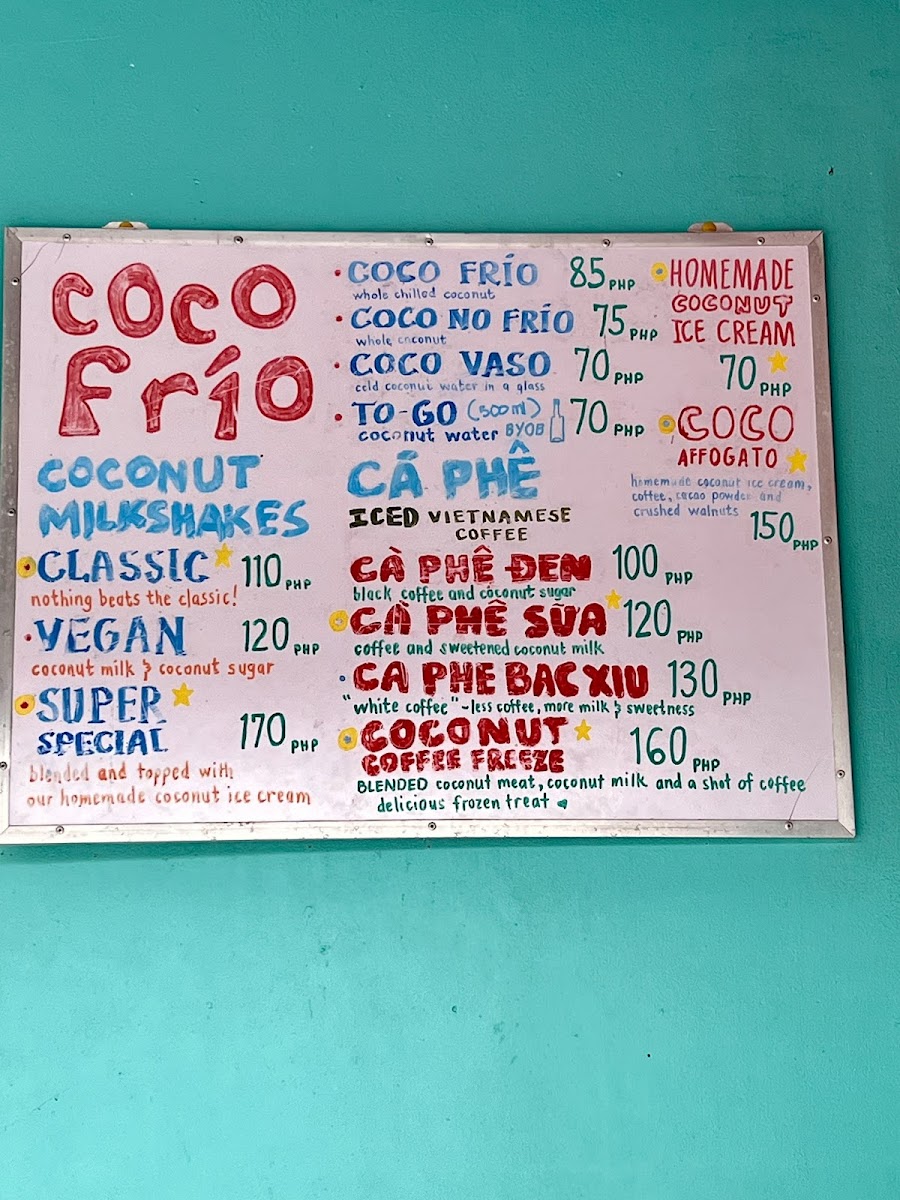 COCO
Frío
COCONUT
MILKSHAKES
CLASSIC 110 PHP
nothing beats the classic!
VEGAN 120 PHP
coconut milk & coconut sugar
SUPER
SPECIAL 170 PHP
blended and topped with
our homemade coconut ice cream
COCO FRÍO 85 PHP
whole chilled coconut
COCO NO FRÍO 75 PHP
whole coconut
COCO VASO 70 PHP
cold coconut water in a glass
TO-GO (500ml) 70 PHP
coconut water BYOB
CÁ PHÊ
ICED VIETNAMESE
COFFEE
CÀ PHÊ ĐEN 100 PHP
black coffee and coconut sugar
CÀ PHÊ SỮA 120 PHP
coffee and sweetened coconut milk
CA PHE BAC XIU 130 PHP
"white coffee" ~ less coffee, more milk & sweetness
COCONUT
COFFEE FREEZE 160 PHP
BLENDED coconut meat, coconut milk and a shot of coffee
delicious frozen treat
HOMEMADE
COCONUT
ICE CREAM
70 PHP
COCO
AFFOGATO
homemade coconut ice cream,
coffee, cacao powder and
crushed walnuts
150 PHP